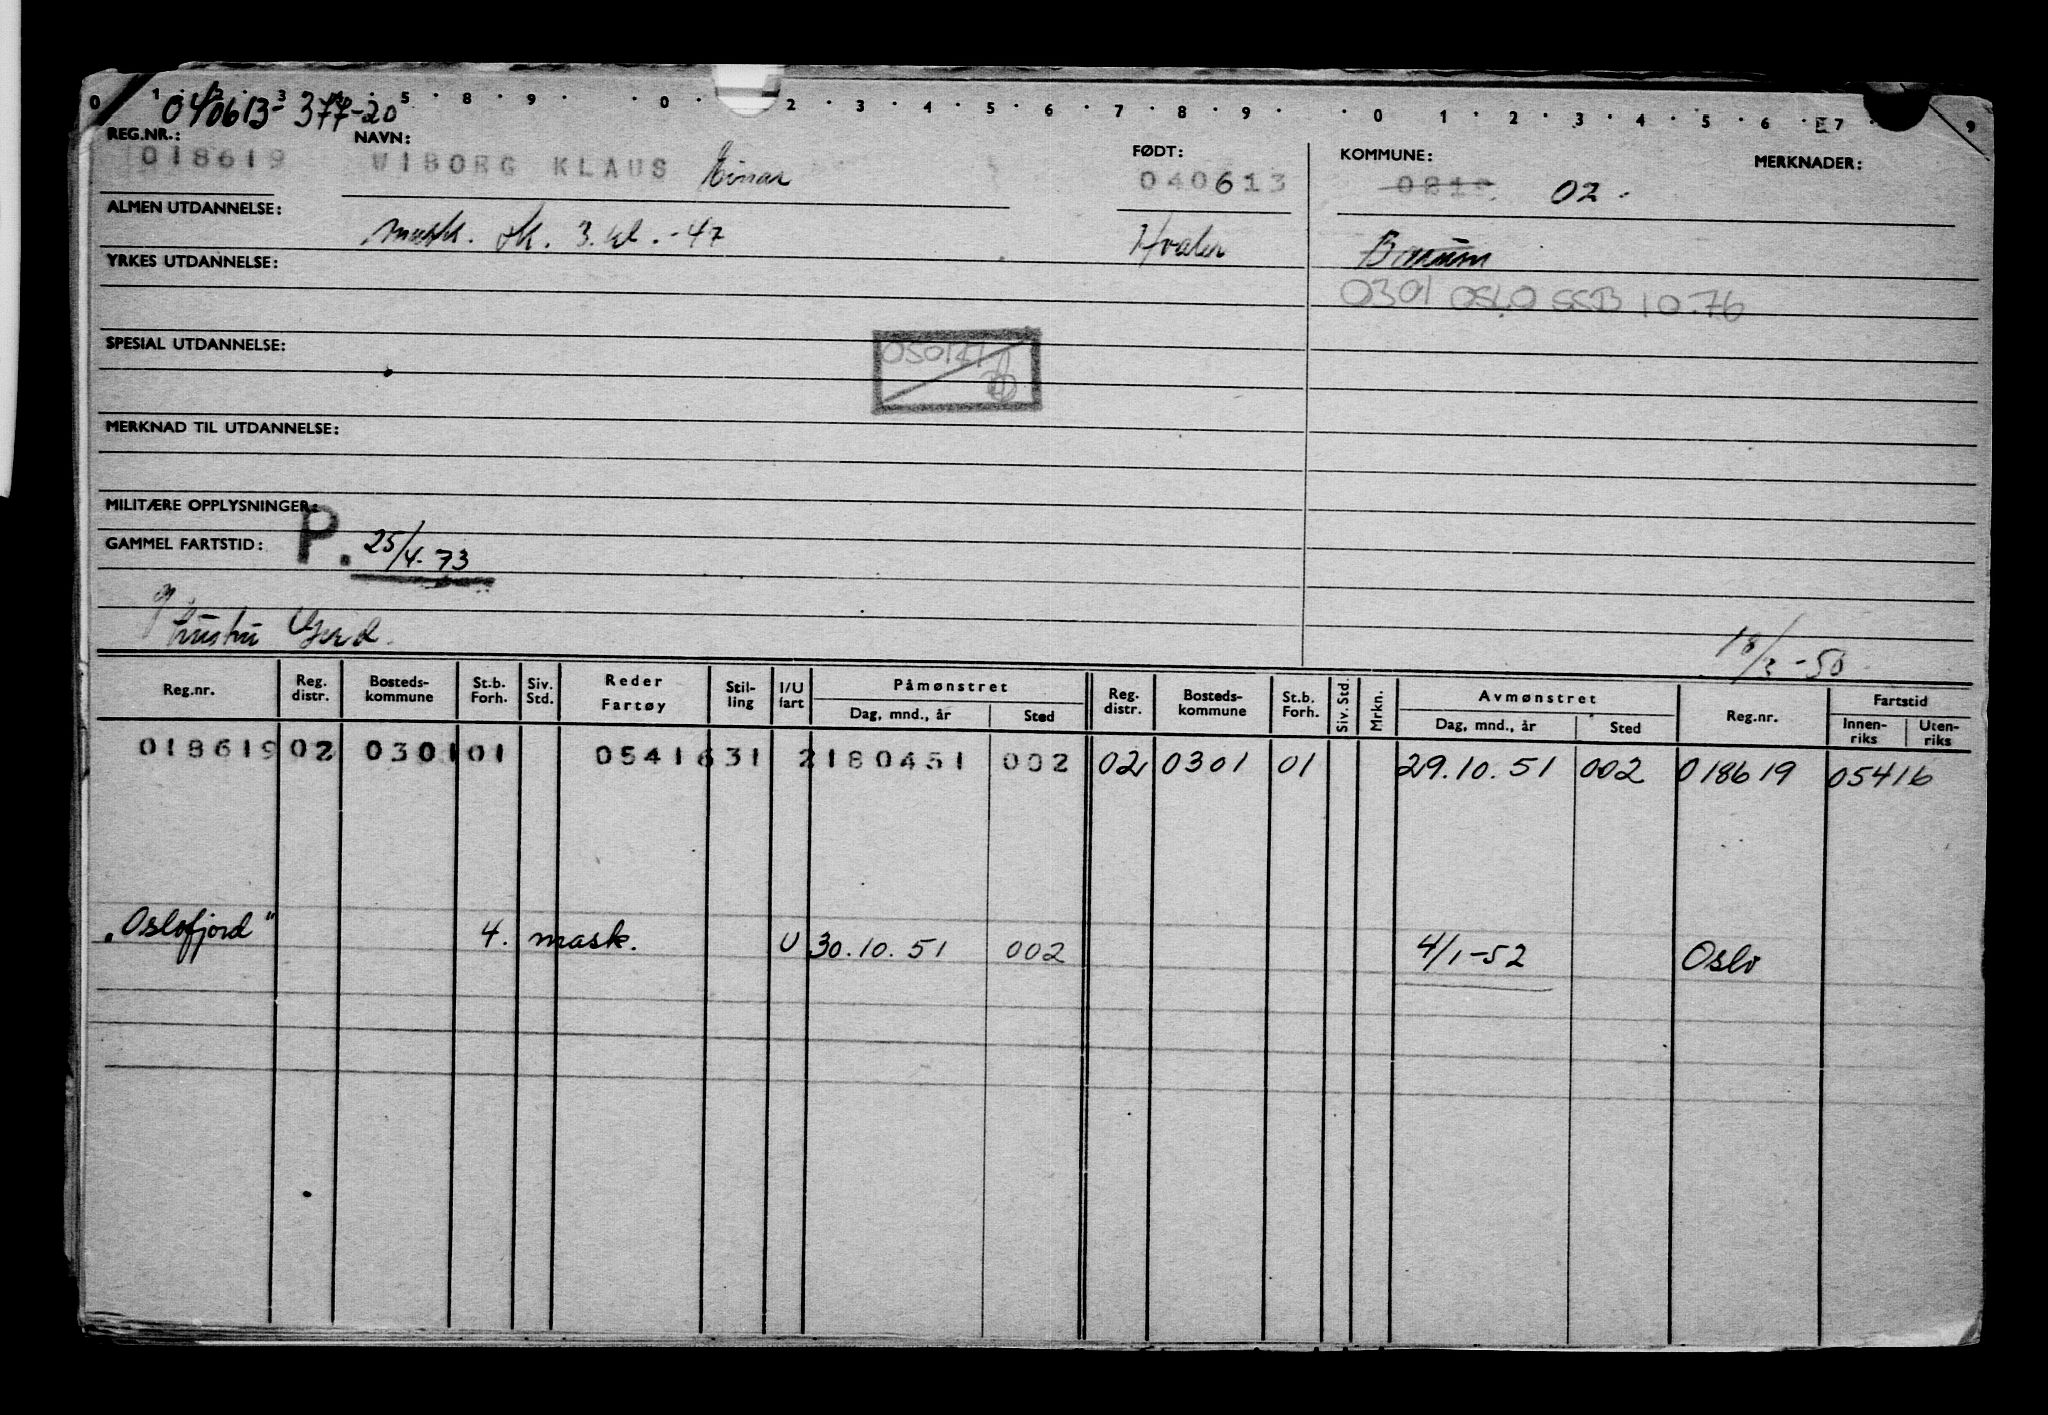 0 1 . 2 . 3 . 4 . 5 . 8 . 9 . . 0 . . 2 . 3 . 4 . 5 . 6 . 7 . 8 . 9 . . 0 . 1 . 2 . 3 . 4 . 5 . 6 . 7 9
040613-377-20
REG.NR.: NAVN: FØDT: KOMMUNE: MERKNADER:
018619 WIBORG KLAUS Einar 040613 02.
ALMEN UTDANNELSE: mask. sk. 3. kl. -47 Hvaler Bærum
YRKES UTDANNELSE:
0301 OSLO SSB 10.76
SPESIAL UTDANNELSE:
MERKNAD TIL UTDANNELSE:
MILITÆRE OPPLYSNINGER:
GAMMEL FARTSTID: P. 25/4-73
g hustru Gerd. 18/2-50
Reg.nr. Reg. distr. Bosteds-kommune St.b. Forh. Siv. Std. Reder Fartøy Stil-ling I/U fart Påmønstret Dag, mnd., år Sted Reg. distr. Bosteds-kommune St.b. Forh. Siv. Std. Mrkn. Avmønstret Dag, mnd., år Sted Reg.nr. Fartstid Innen-riks Uten-riks
018619 02 0301 01 05416 31 2 180451 002 02 0301 01 29.10.51 002 018619 05416
"Oslofjord" 4. mask. U 30.10.51 002 4/1-52 Oslo